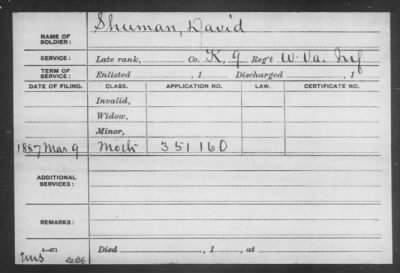 NAME OF SOLDIER: Shuman, David
SERVICE: Late rank, Co. K, 9 Reg't W. Va. Inf
TERM OF SERVICE: Enlisted , 1 Discharged , 1
DATE OF FILING. CLASS. APPLICATION NO. LAW. CERTIFICATE NO.
Invalid,
Widow,
Minor,
1887 Mar. 9 Moth 351160
ADDITIONAL SERVICES:
REMARKS:
Died , 1 , at